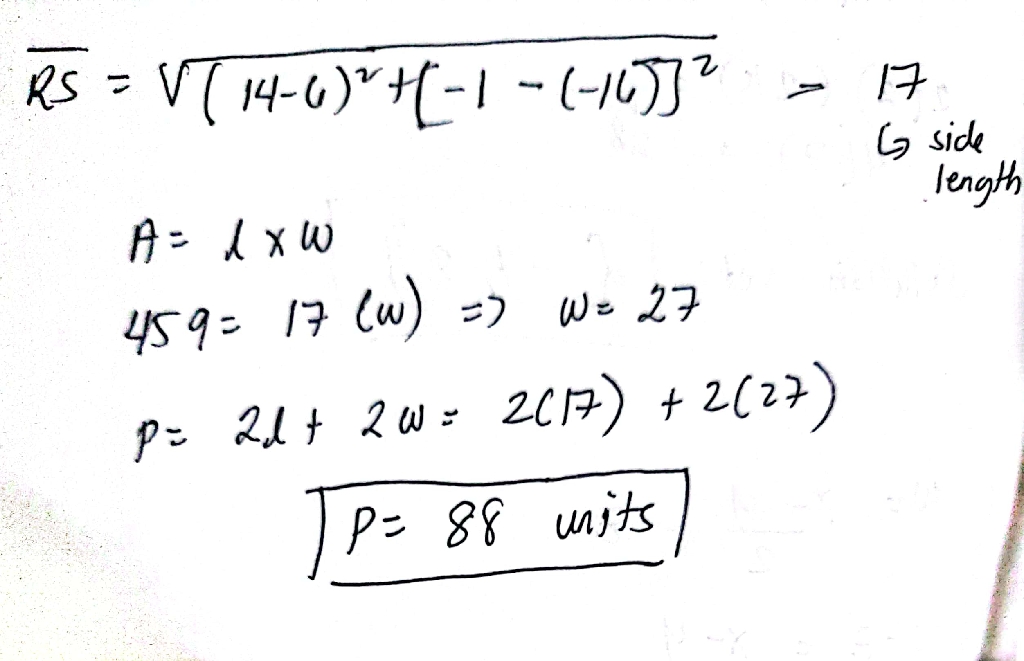 RS = √(14-6)² + [-1 - (-16)]² = 17
↳ side
length
A = l x w
459 = 17 (w) => w = 27
P = 2l + 2w = 2(17) + 2(27)
P = 88 units